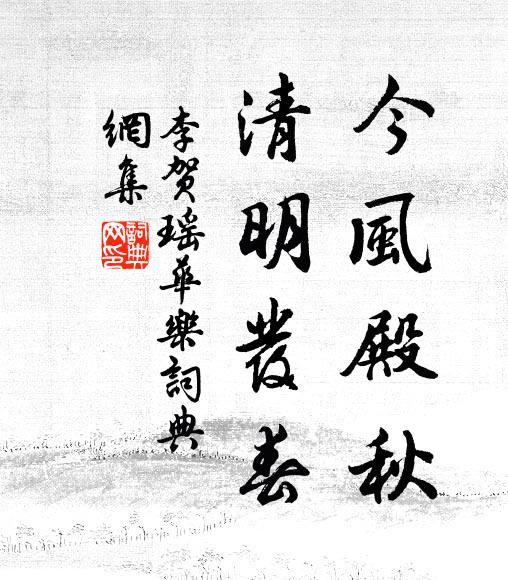 今風殿秋
清明發春
李賀瑶華樂詞典
網集
詞典
网印